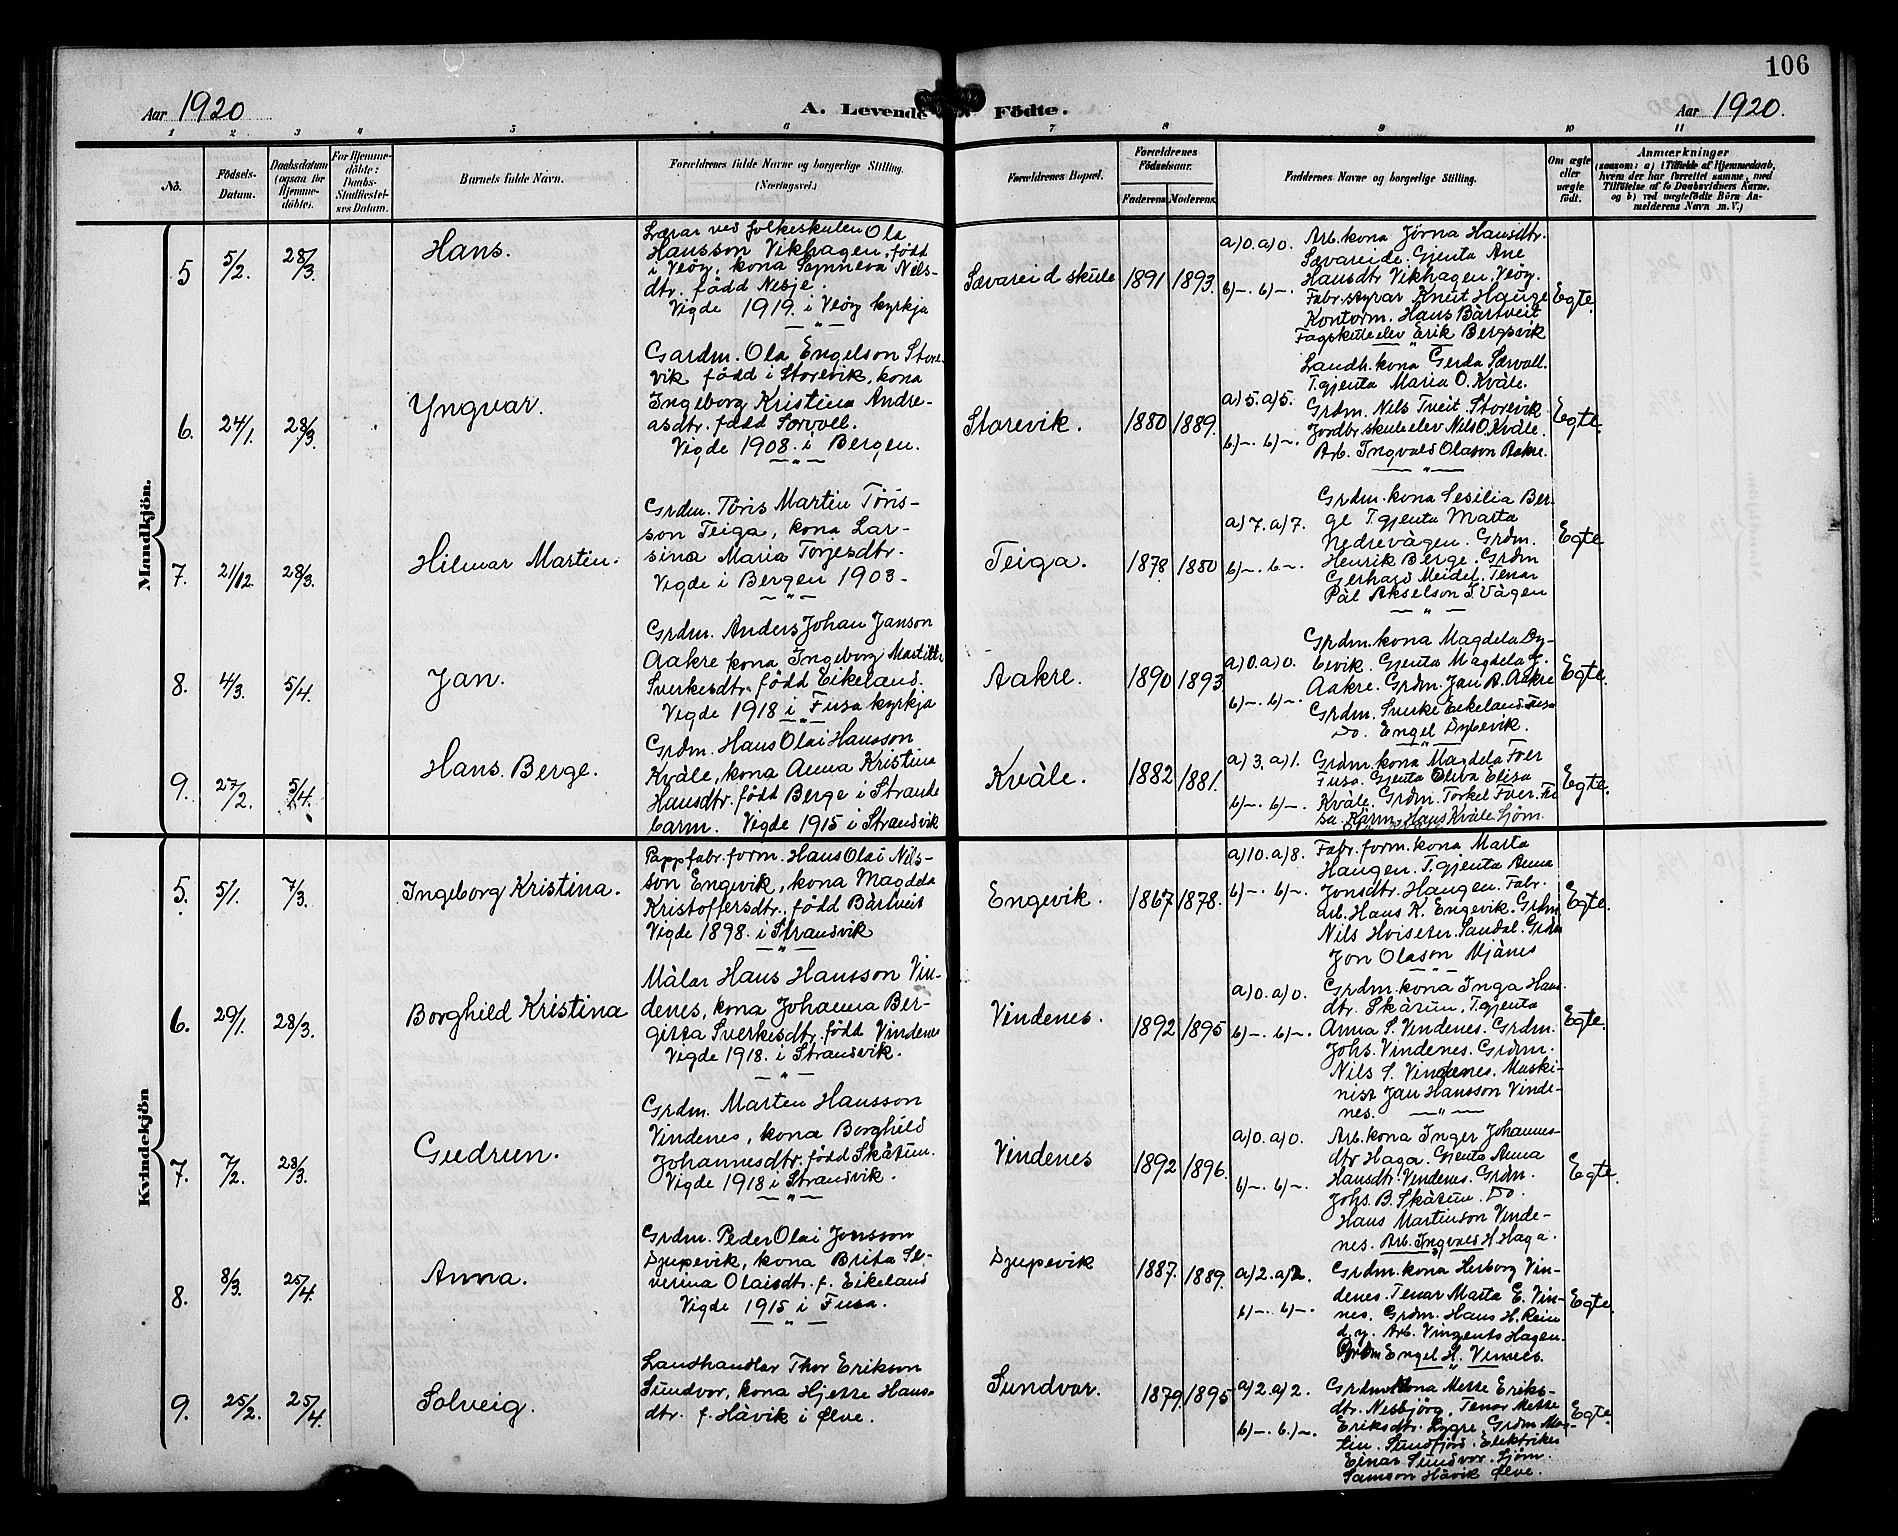 106
Aar 1920
A. Levende Födte.
Aar 1920.
1 2 3 4 5 6 7 8 9 10 11
No.
Födsels-Datum.
Daabsdatum (ogsaa for Hjemme-döbte).
For Hjemme-döbte: Daabs-Stadfæstel-ses Datum.
Barnets fulde Navn.
Forældrenes fulde Navne og borgerlige Stilling. (Næringsvei.)
Forældrenes Bopæl.
Forældrenes Födselsaar.
Faderens. Moderens.
Faddernes Navne og borgerlige Stilling.
Om ægte eller uægte födt.
Anmærkninger
(saasom: a) i Tilfælde af Hjemmedaab,
hvem der har forrettet samme, med
Tilföielse af to Daabsvidners Navne,
og b) ved uægtefödte Börn An-
melderens Navn m. V.)
Mandkjön.
5 5/2. 28/3. Hans.
Lærar ved folkeskulen Ola
Hansson Vikhagen, född
i Veöy, kona Synneva Nils-
dtr. född Nesje.
Vigde 1919. i Veöy kyrkja
Sævareid skule 1891 1893.
a) 0. a) 0.
b) –. b) –.
Arb. kona Jörna Hansdtr.
Sævareide. Gjenta Ane
Hansdtr Vikhagen, Veöy.
Fabr.styrar Knut Hauge
Kontorm. Hans Bårtveit
Fagskuleelev Erik Bergsvik
Egte.
6. 24/1. 28/3. Yngvar.
Gardm. Ola Engelson Store-
vik född i Storevik, kona
Ingeborg Kristina Andre-
asdtr. född Særvoll.
Vigde 1908. i Bergen.
Storevik. 1880 1889.
a) 5. a) 5.
b) –. b) –.
Landh. kona Gerda Særvoll.
T.gjenta Maria O. Kvåle.
Grdm. Nils Tveit. Storevik
Jordbr skuleelev Nils O. Kvåle.
Arb. Ingvald Olason Aakre.
Egte.
7. 21/12. 28/3. Hilmar Martin.
Grdm. Töris Martin Töris-
son Teiga, kona Lar-
sina Maria Torjesdtr.
Vigde i Bergen 1903.
Teiga. 1878 1880
a) 7. a) 7.
b) –. b –.
Grdm. kona Sesilia Ber-
ge T.gjenta Marta
Nedrevågen. Grdm.
Henrik Berge. Grdm
Gerhard Meidel. Tenar
Pål Akselson I. Vågen
Egte
8. 4/3. 5/4. Jan.
Grdm. Anders Johan Janson
Aakre kona Ingeborg
Sverkesdtr. född Eikeland.
Vigde 1918 i Fusa kyrkja
Aakre. 1890 1893
a) 0. a) 0.
b) –. b) –.
Grdm. kona Magdela Dy-
bevik. Gjenta Magdela J.
Aakre. Grdm. Jan A. Aakre
Grdm. Sverke Eikeland Fusa
Do. Engel Dybevik.
Egte.
9. 27/2. 5/4. Hans Berge.
Grdm. Hans Olai Hansson
Kvåle, kona Anna Kristina
Hansdtr. född Berge i Strande
barm. Vigde 1915 i Strandvik
Kvåle. 1882 1881.
a) 3. a) 1.
b) –. b) –.
Grdm. kona Magdela
Fusa. Gjenta Oliva Elisa
Kvåle. Grdm. Torkel
Hans Kvåle.
Egte.
Kvindekjön
5. 5/1. 7/3. Ingeborg Kristina.
Pappfabr. form. Hans Olai Nils-
son Engevik, kona Magdela
Kristoffersdtr. född Bårtveit
Vigde 1898. i Strandvik
Engevik. 1867 1878.
a) 10. a) 8.
b) –. b) –.
Fabr. form. kona Marta
Haugen. T.gjenta Anna
Jonsdtr. Haugen. Fabr.
arb. Hans K. Engevik. Grdm
Nils Hviseter. Sandal. Grdm
Jon Olason Mjånes
Egte.
6. 29/1. 28/3. Borghild Kristina
Målar Hans Hansson Vin-
denes, kona Johanna Ber-
gitta Sverkesdtr. född Vindenes
Vigde 1918. i Strandvik.
Vindenes. 1892 1895
a) 0. a) 0.
b) –. b) –.
Grdm. kona Inga Hans
dtr. Skåtun. T.gjenta
Anna S. Vindenes. Grdm.
Johs. Vindenes. Grdm.
Nils S. Vindenes. Maski-
nist Jan Hansson Vinde-
nes.
Egte.
7. 7/2. 28/3. Gudrun.
Grdm. Marten Hansson
Vindenes, kona Borghild
Johannesdtr. född Skåtun.
Vigde 1918 i Strandvik.
Vindenes 1892 1896.
a) 0. a) 0.
b) –. b) –.
Arb. kona Inger Johannes-
dtr Haga. Gjenta Anna
Hansdtr. Vindenes. Grdm.
Johs. B. Skåtun. Do.
Hans Martinson Vinde-
nes. Arb. Ingvald H. Haga.
Egte.
8. 8/3. 25/4. Anna.
Grdm. Peder Olai Jonsson
Djupevik, kona Brita Se-
verina Olaisdtr. f. Eikeland
Vigde 1915 i Fusa.
Djupevik 1887. 1889.
a) 2. a) 2.
b) –. b) –.
Grdm. kona Herborg Vin-
denes. Tenar Marta E. Vin-
nes. Grdm. Hans H. Rein
d.y. Arb. Vingents Hagen.
Grdm Engel H. Vinnes.
Egte.
9. 25/2. 25/4. Solveig.
Landhandlar Thor Erikson
Sundvor, kona Hjerte Hans-
dtr. f. Håvik i Ölve.
Sundvor. 1879. 1895
a) 2. a) 2.
b) –. b.) –.
Grdm. kona Mette Eriks-
dtr. Nesbjörg, Tenar Mette
Eriksdtr. Lygre, Grdm Mar-
tin. Sundfjord. Elektriker
Einar Sundvor. Sjöm.
Samson Håvik Ölve.
Egte.